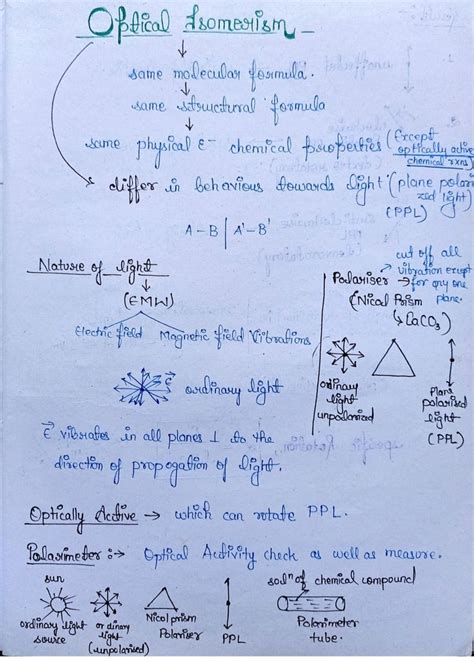 Optical Isomerism
same molecular formula.
same structural formula
same physical & chemical properties (Except optically active chemical rxns)
differ in behaviour towards light (plane polarized light) (PPL)
A-B | A'-B'
Nature of light
(EMW)
Electric field Magnetic field Vibrations
ordinary light
E vibrates in all planes ⊥ to the
direction of propogation of light.
cut off all
vibration except
for any one
plane.
Polariser →
(Nical Prism
↳ CaCO3)
ordinary
light
unpolarized
Plane
polarised
light
(PPL)
Optically Active → which can rotate PPL.
Polarimeter :→ Optical Activity check as well as measure.
sun
ordinary light
source
ordinary
light
(unpolarised)
Nicol prism
Polariser
PPL
sol^n of chemical compound
Polarimeter
tube.